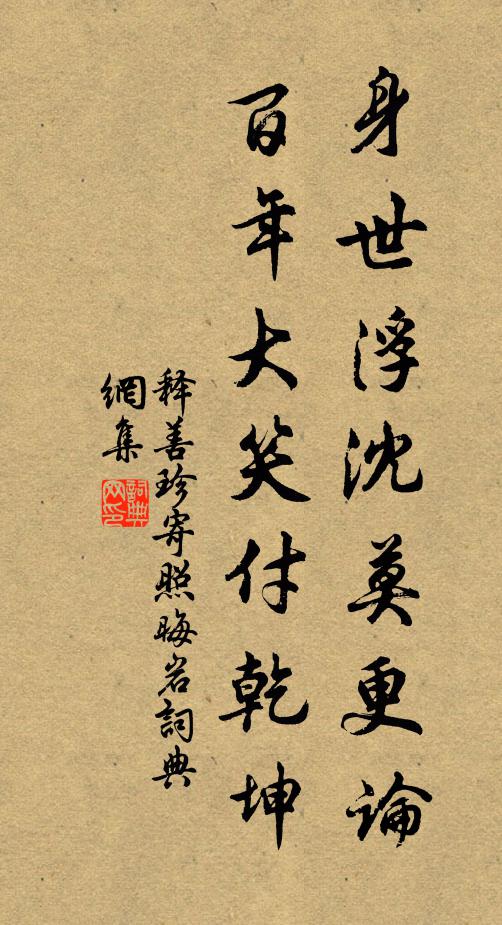 身世浮沈莫更論
百年大笑付乾坤
释善珍寄照晦岩詞典
網集
詞典
网印